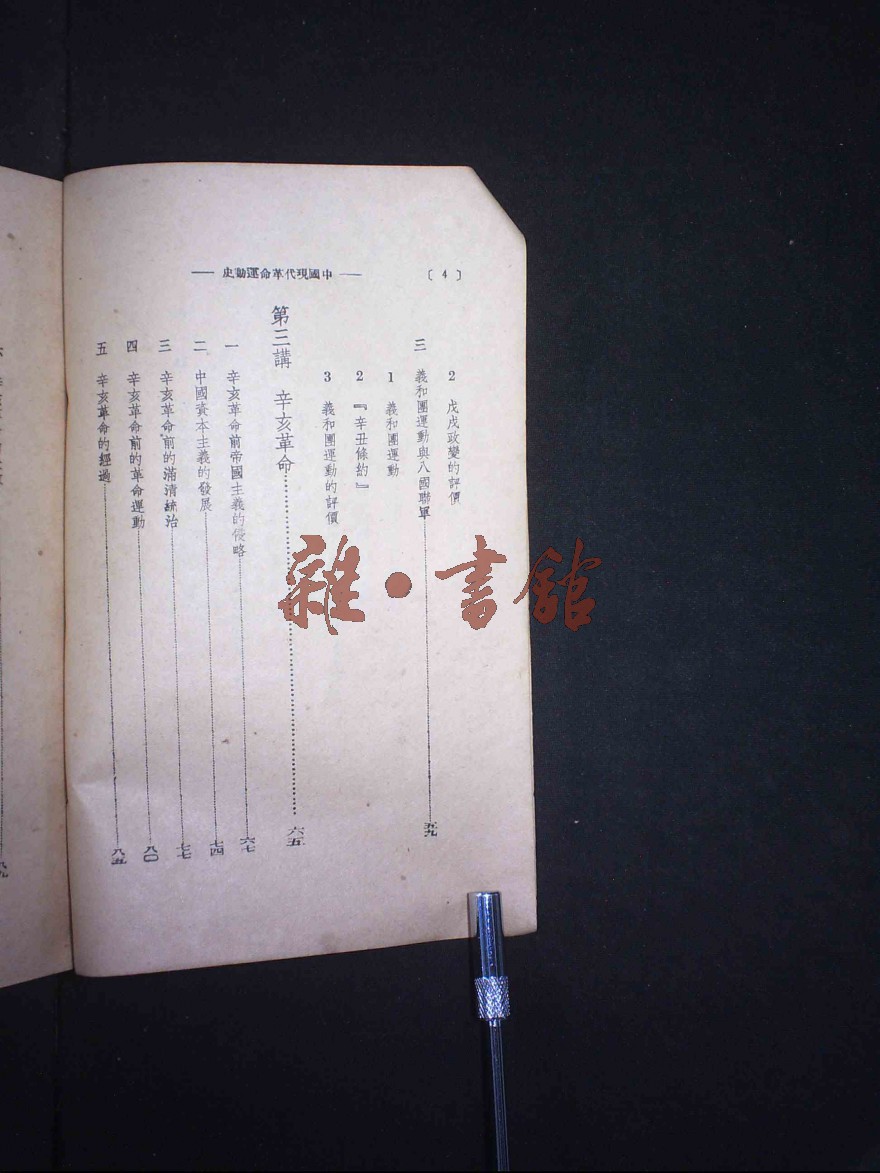 〔4〕
—— 中國現代革命運動史 ——
2 戊戌政變的評價
三 義和團運動與八國聯軍……五九
1 義和團運動
2 『辛丑條約』
3 義和團運動的評價
第三講 辛亥革命……六五
一 辛亥革命前帝國主義的侵略……六七
二 中國資本主義的發展……七四
三 辛亥革命前的滿清統治……七七
四 辛亥革命前的革命運動……八〇
五 辛亥革命的經過……八五
雜·書館